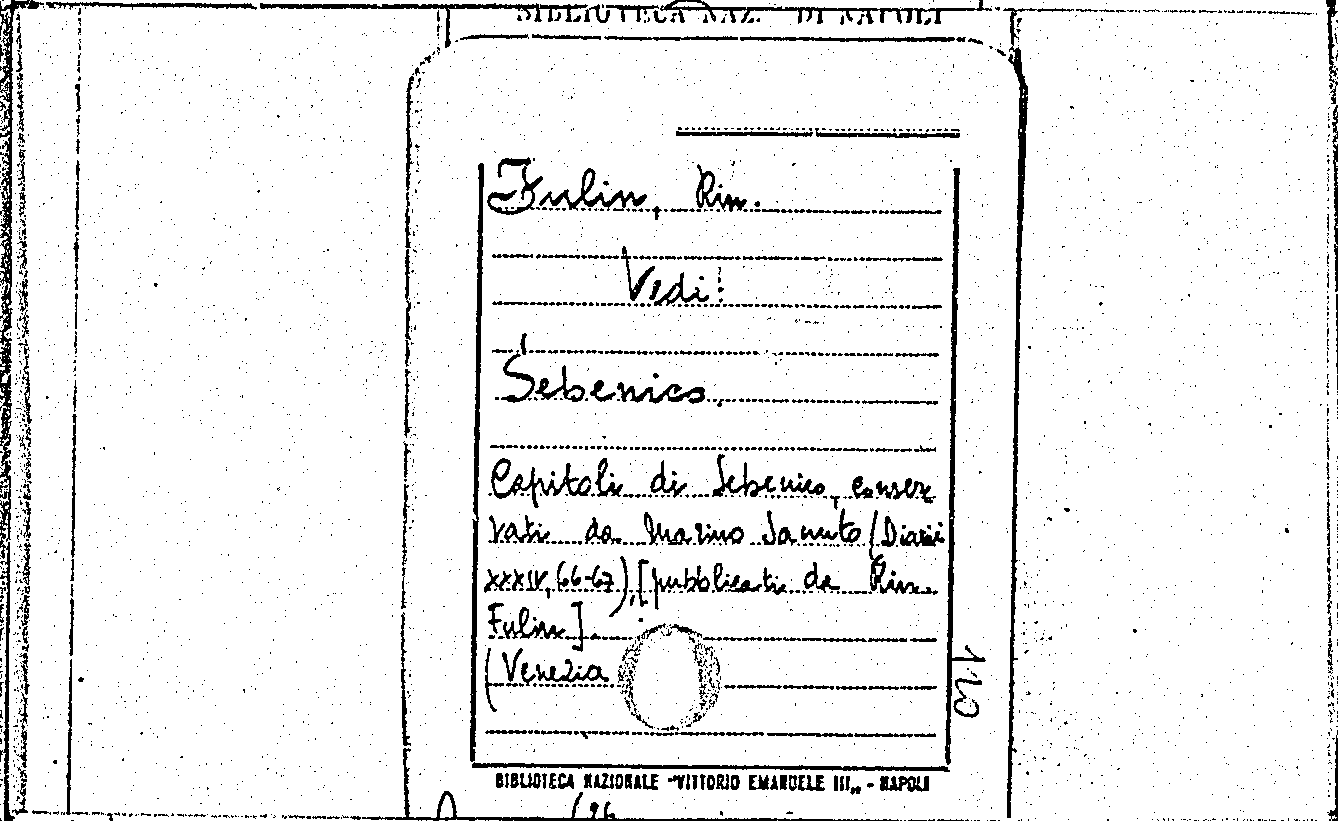 BIBLIOTECA NAZ. DI NAPOLI
Fulin, Rin.
Vedi:
Sebenico.
Capitoli di Sebenico, conser
vati da Marino Sanuto (Diarii
XXXIV, 66-67), [pubblicati da Rin.
Fulin].
(Venezia
120
BIBLIOTECA NAZIONALE "VITTORIO EMANUELE III„ - NAPOLI